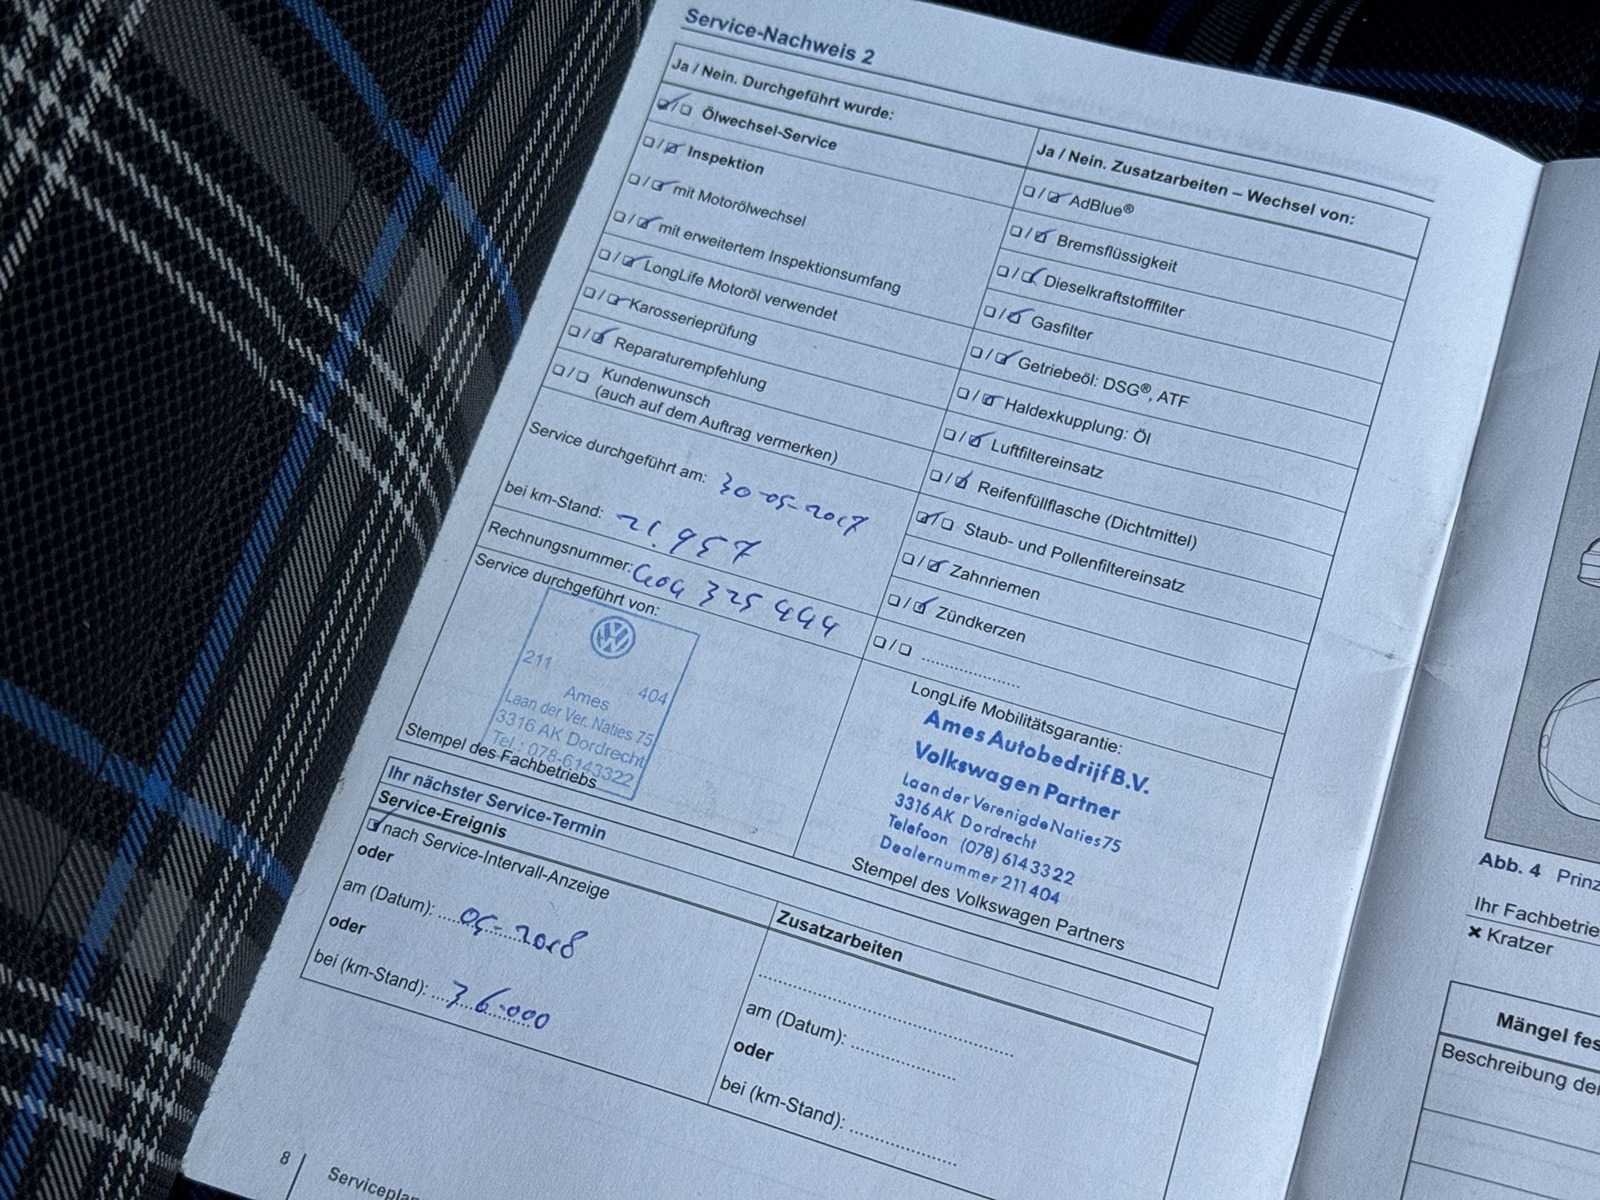 Service-Nachweis 2
Ja / Nein. Durchgeführt wurde:
Ölwechsel-Service
Inspektion
mit Motorölwechsel
mit erweitertem Inspektionsumfang
LongLife Motoröl verwendet
Karosserieprüfung
Reparaturempfehlung
Kundenwunsch
(auch auf dem Auftrag vermerken)
Service durchgeführt am: 30-05-2017
bei km-Stand: 21.957
Rechnungsnummer: 404 325 444
Service durchgeführt von:
211 404
Ames
Laan der Ver. Naties 75
3316 AK Dordrecht
Tel.: 078-6143322
Stempel des Fachbetriebs
Ja / Nein. Zusatzarbeiten – Wechsel von:
AdBlue®
Bremsflüssigkeit
Dieselkraftstofffilter
Gasfilter
Getriebeöl: DSG®, ATF
Haldexkupplung: Öl
Luftfiltereinsatz
Reifenfüllflasche (Dichtmittel)
Staub- und Pollenfiltereinsatz
Zahnriemen
Zündkerzen
LongLife Mobilitätsgarantie:
Ames Autobedrijf B.V.
Volkswagen Partner
Laan der Verenigde Naties 75
3316 AK Dordrecht
Telefoon (078) 6143322
Dealernummer 211404
Stempel des Volkswagen Partners
Ihr nächster Service-Termin
Service-Ereignis
nach Service-Intervall-Anzeige
oder
am (Datum): 05-2018
oder
bei (km-Stand): 36.000
Zusatzarbeiten
am (Datum):
oder
bei (km-Stand):
8
Abb. 4
Kratzer